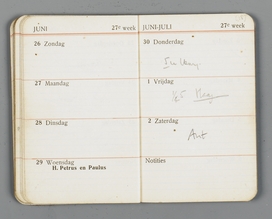 JUNI 27e week
26 Zondag
27 Maandag
28 Dinsdag
29 Woensdag
H. Petrus en Paulus
JUNI-JULI 27e week
30 Donderdag
1 Vrijdag
2 Zaterdag
Notities